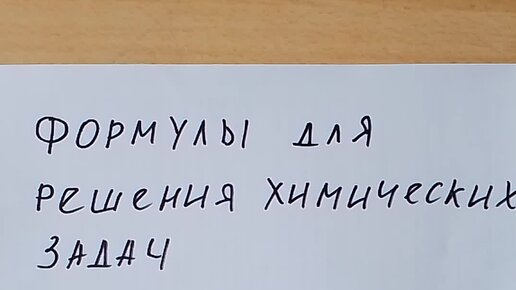 ФОРМУЛЫ ДЛЯ
РЕШЕНИЯ ХИМИЧЕСКИХ
ЗАДАЧ